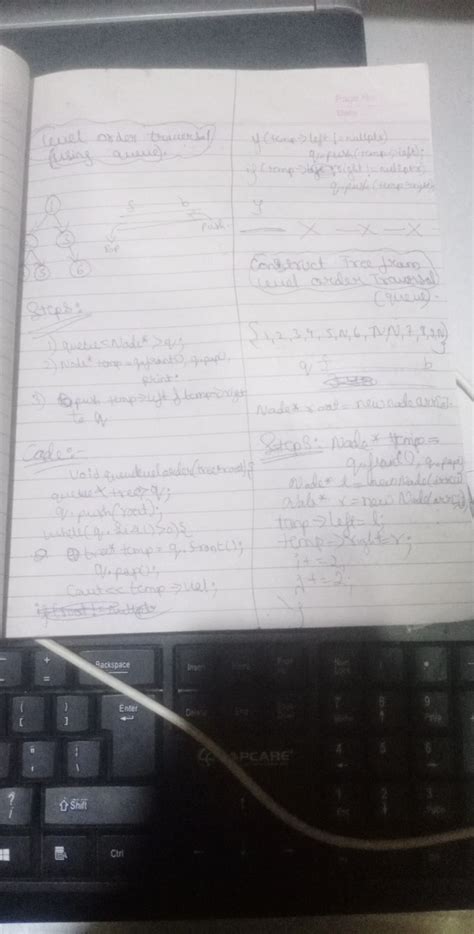 Level order traversal
(using queue).
1
2
5
6
f
b
pop
push
Steps:
1) queue<Node*>q;
2) Node* temp = q.front(), q.pop(),
print.
3) push temp->left & temp->right
to q
Code:-
Void queuelevelorder(tree*root){
queue<tree*>q;
q.push(root);
while(q.size()>0){
tree* temp = q.front();
q.pop();
cout<<temp->val;
Page No.
Date
if(temp->left!=nullptr)
q.push(temp->left);
if(temp->right!=nullptr)
q.push(temp->right);
}
Construct Tree from
Level order Traversal
(queue).
{1,2,3,4,5,N,6,N,N,7,8,
q
f
b
Node* root = new Node
Steps: Node* temp =
q.front(), q.pop()
Node* l = new Node(
Node* r = new Node(
temp->left = l;
temp->right = r;
i+=2;
j+=2;
}
Backspace
Enter
Shift
Ctrl
Insert
Delete
End
Num
Lock
7
8
9
PgUp
4
5
6
1
2
3
ZAPCABE